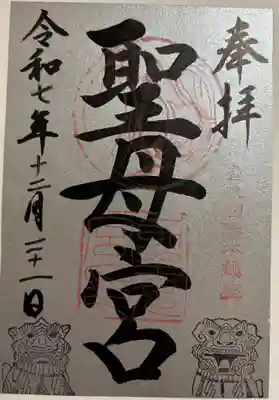 奉拝
聖母宮
令和七年十二月二十一日